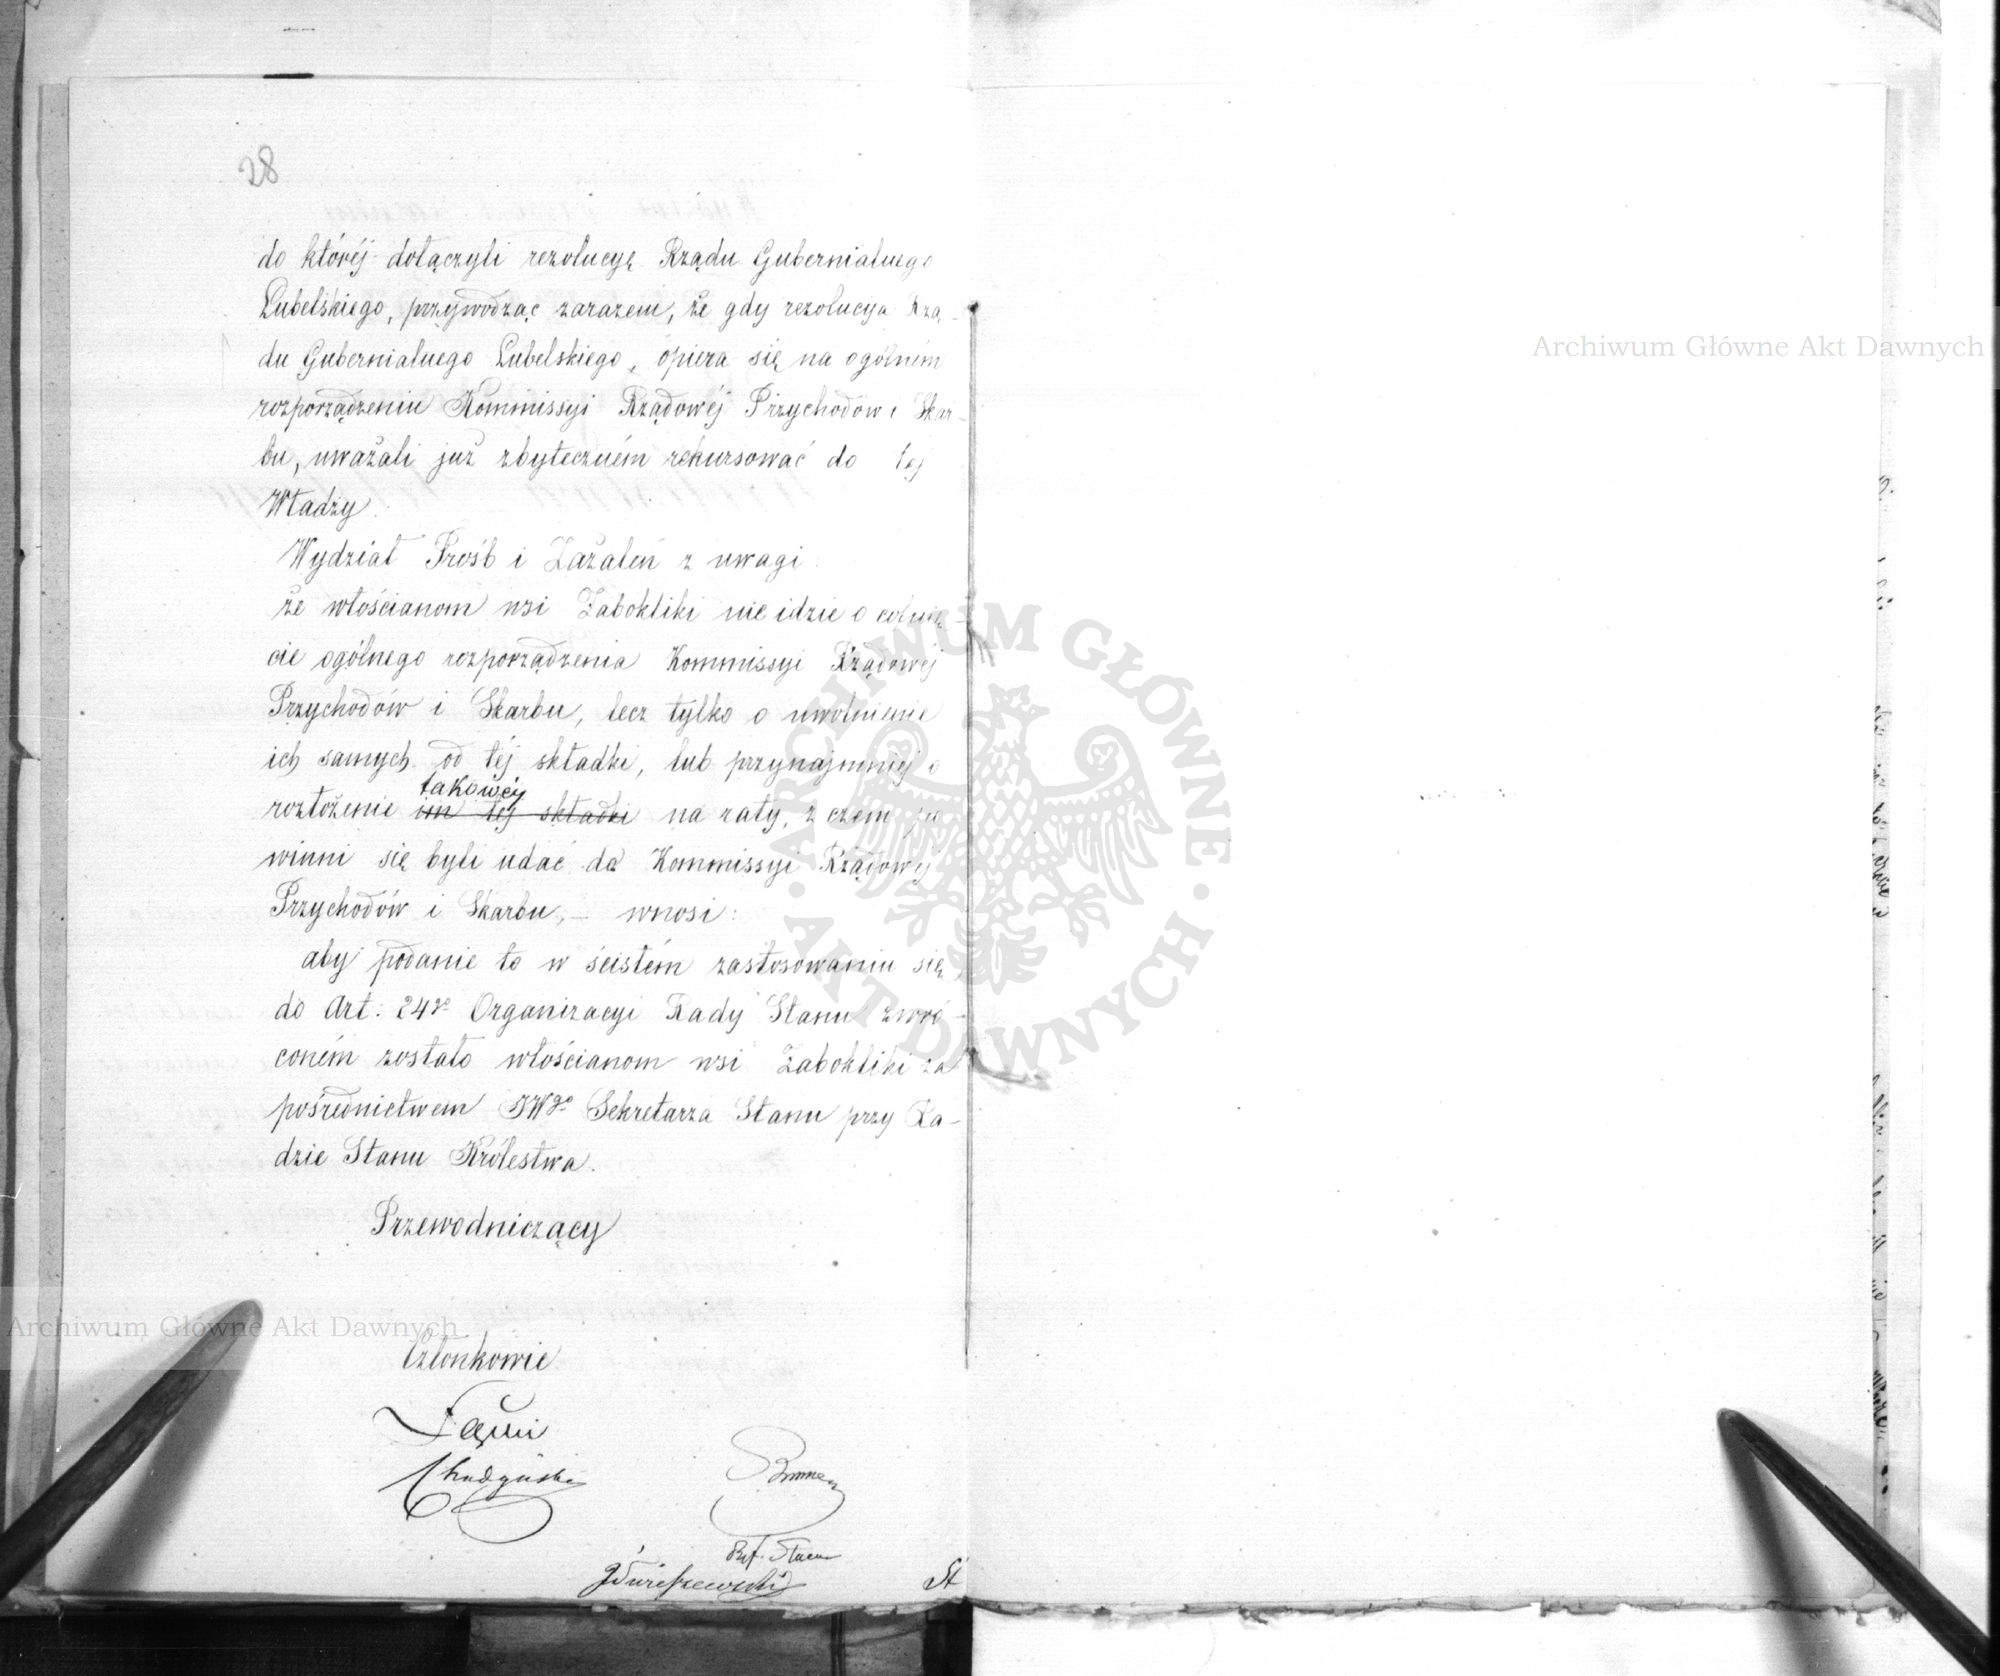 28
do któréj dołączyli rezolucyę Rządu Gubernialnego
Lubelskiego, przywodząc zarazem, że gdy rezolucya Rzą-
du Gubernialnego Lubelskiego, opiera się na ogólném
rozporządzeniu Kommissyi Rządowéj Przychodów i Skar-
bu, uważali już zbyteczném rekursować do téj
Władzy.
Wydział Prośb i Zażaleń z uwagi:
że włościanom wsi Żabokliki nie idzie o cofnię-
cie ogólnego rozporządzenia Kommissyi Rządowéj
Przychodów i Skarbu, lecz tylko o uwolnienie
ich samych od téj składki, lub przynajmniéj o
takowéj
rozłożenie im téj składki na raty, z czem po
winni się byli udać do Kommissyi Rządowéj
Przychodów i Skarbu, – wnosi:
aby podanie to w ścisłém zastosowaniu się
do Art: 24go Organizacyi Rady Stanu zwró-
coném zostało włościanom wsi Żabokliki za
pośrednictwem JWgo Sekretarza Stanu przy Ra-
dzie Stanu Królestwa.
Przewodniczący
Członkowie
Ref. Stanu
Archiwum Główne Akt Dawnych
Archiwum Główne Akt Dawnych
ARCHIWUM GŁÓWNE
AKT DAWNYCH